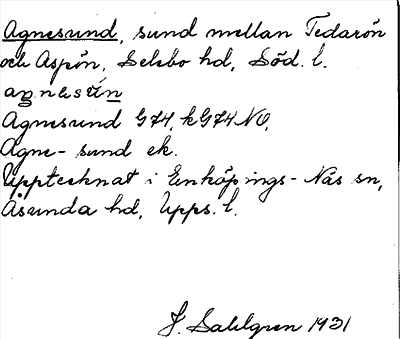 Agnesund, sund mellan Tedarön
och Aspön, Selebo hd, Söd. l.
agnesún
Agnesund G74, kG74 NO,
Agne- sund ek.
Upptecknat i Enköpings-Näs sn,
Åsunda hd, Upps. l.
J. Sahlgren 1931